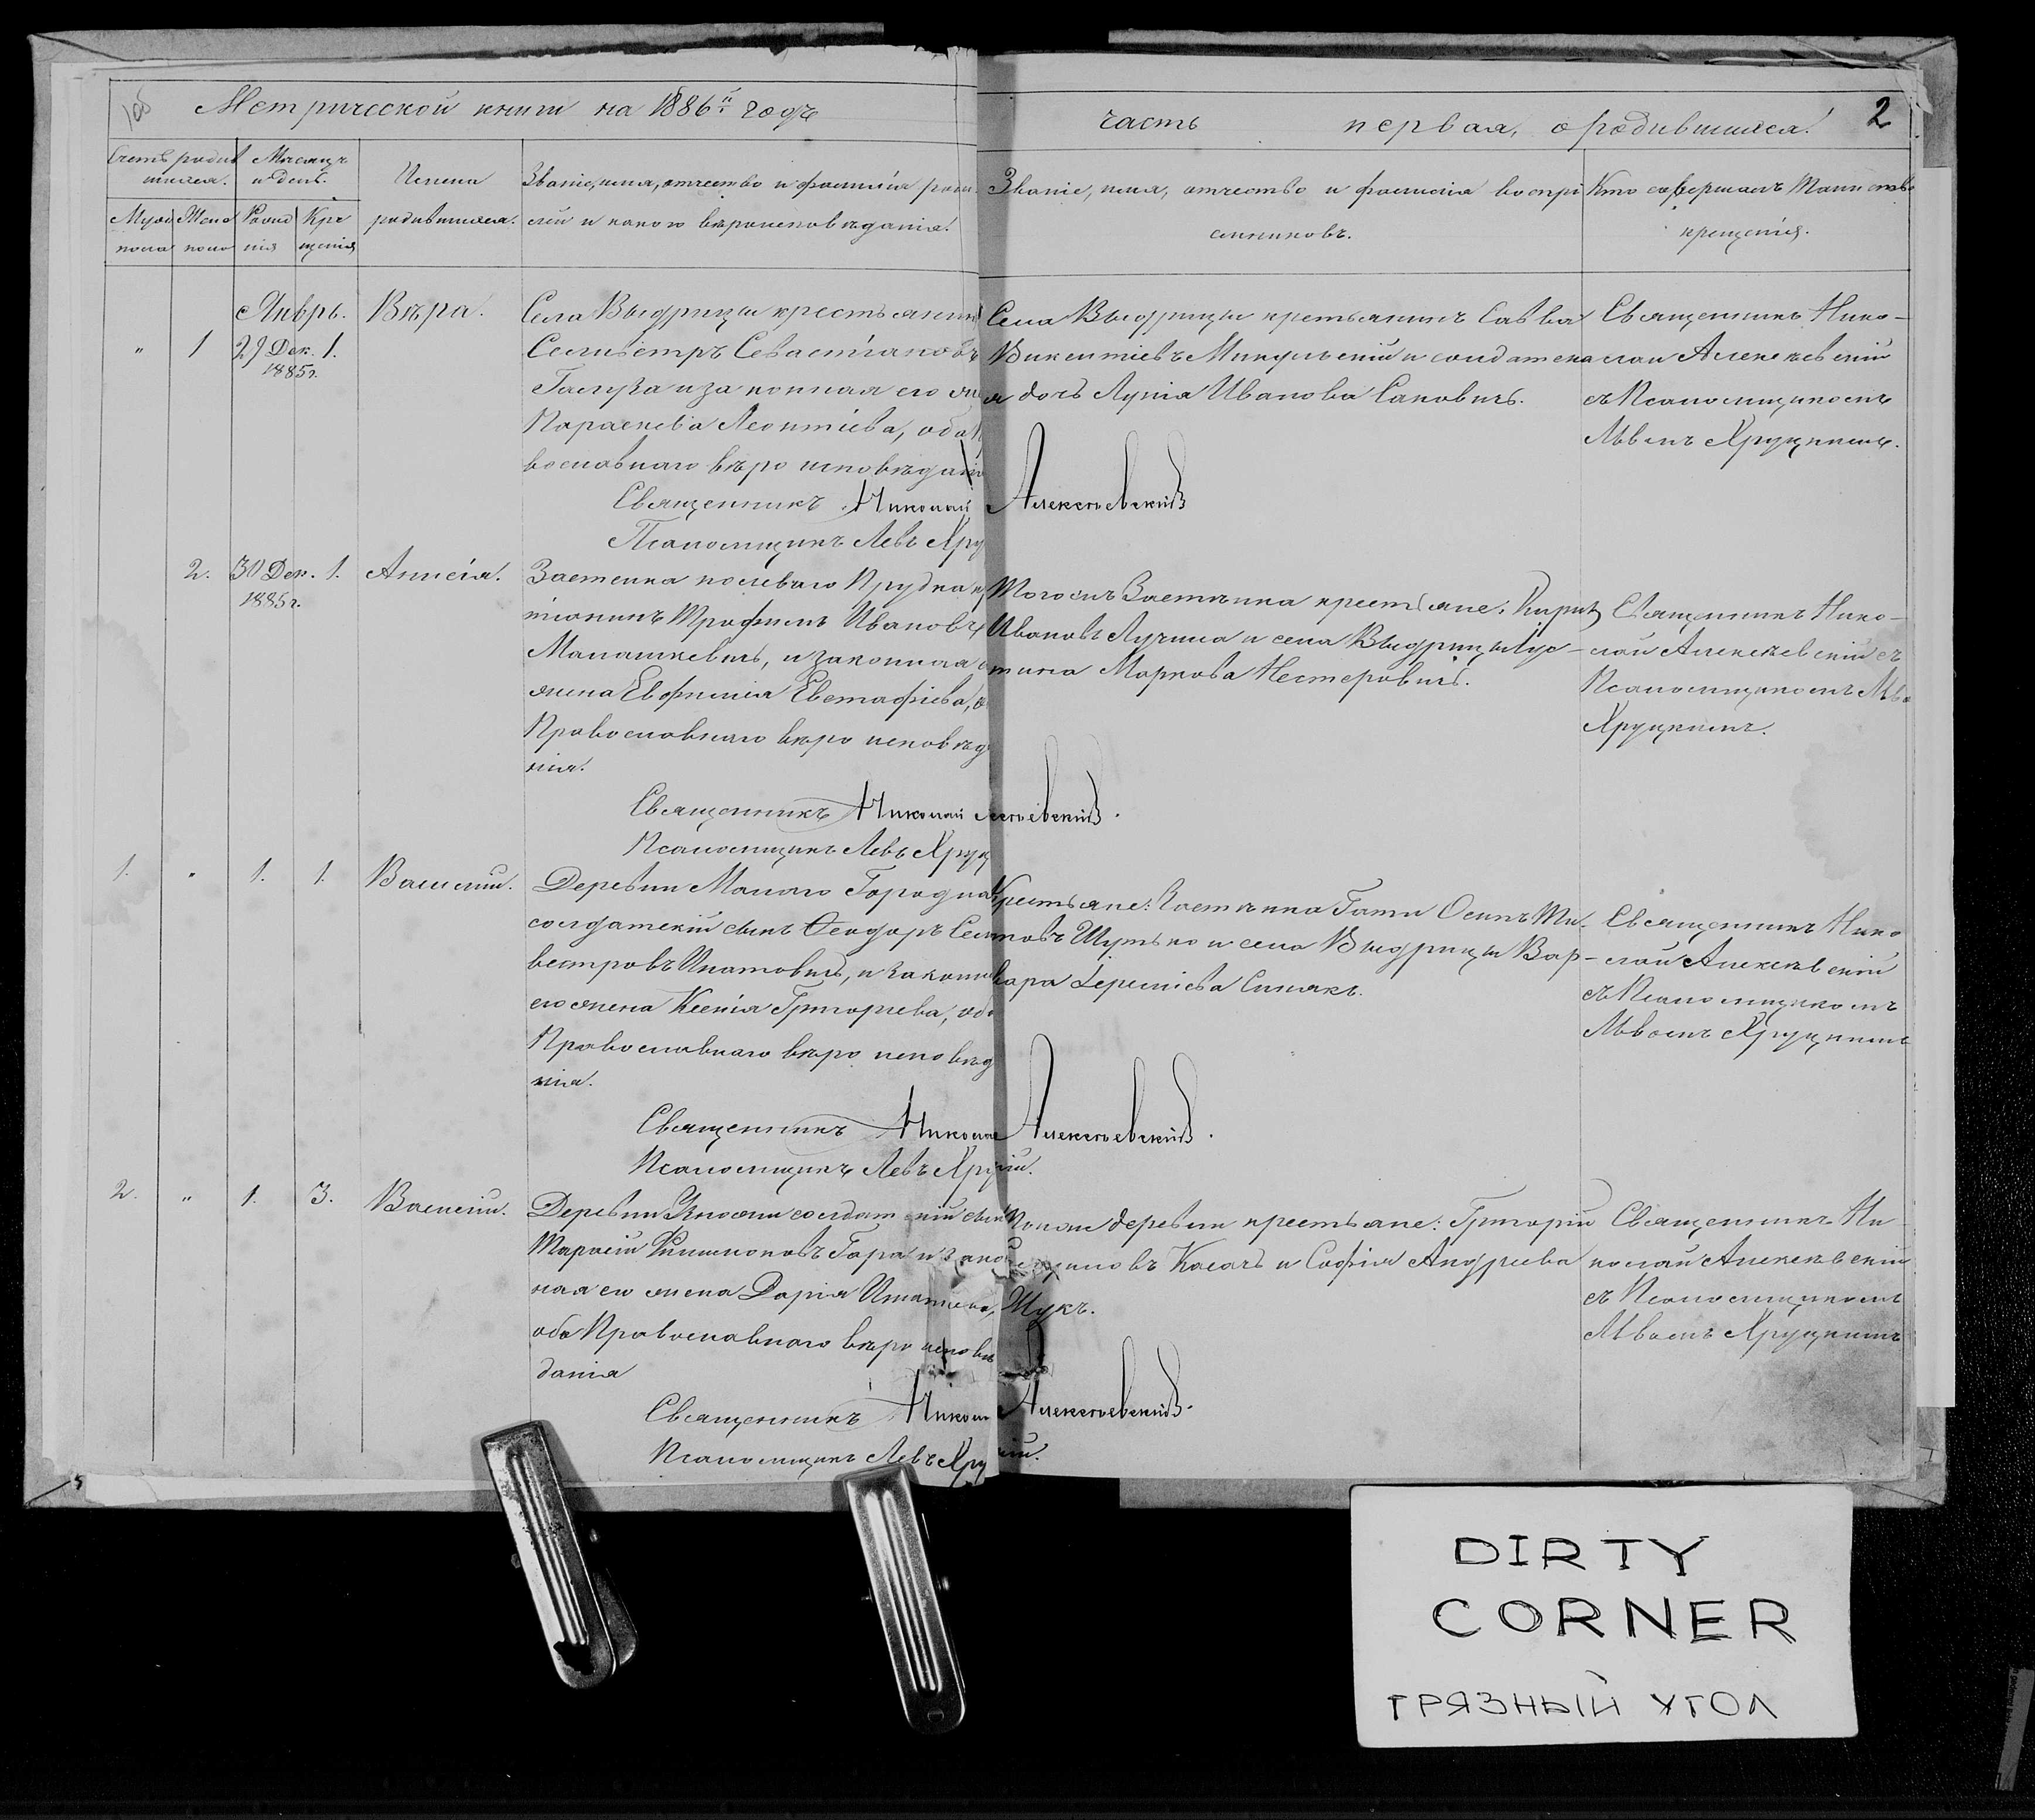 Метрической книги на 1886й годъ
часть первая, о родившихся.
2
Счетъ родив
шихся.
Мѣсяцъ
и день.
Имена
родившихся.
Званіе, имя, отчество и фамилія роди
лей и какого вѣроисповѣданія.
Званіе, имя, отчество и фамилія воспрі
емниковъ.
Кто совершалъ Таинство
крещенія.
Муж
пола
Жен
пола
Рожд
нія
Кре
щенія
Январь.
" 1 29 Дек. 1.
1885 г.
Вѣра.
Села Выдрицы крестьянинъ
Селивестръ Севастіановъ
и законная его
Параскева Леонтіева, оба
вославнаго вѣроисповѣдані
Священникъ Николай Алексѣевскій
Псаломщикъ Левъ Хру
Села Выдрицы крестьянинъ Савва
Викентіевъ Микульскій и солдатска
я дочь Лукія Иванова Сановичъ.
Священникъ Нико-
лай Алексѣевскій
съ Псаломщикомъ
Львомъ Хруцкимъ.
2. 30 Дек. 1.
1885 г.
Анисія.
Застѣнка полеваго Прудка
Трофимъ Ивановъ
Малашкевичъ, и законная
жена Евфимія Евстафіева,
Православнаго вѣроисповѣд
нія.
Священникъ Николай Алексѣевскій.
Псаломщикъ Левъ Хруц
Тогожъ Застѣнка крестьяне:
Ивановъ Лучина и села Выдрицы Іус-
тина Маркова Нестеровичъ.
Священникъ Нико-
лай Алексѣевскій съ
Псаломщикомъ Льво
Хруцкимъ.
1. " 1. 1.
Василій.
Деревни Малаго Городна
солдатскій сынъ Ѳеодоръ Сели
вестровъ Игнатовичъ, и законн
его жена Ксенія Григорьева, об
Православнаго вѣроисповѣд
нія.
Священникъ Николай Алексѣевскій.
Псаломщикъ Левъ Хруцкій.
Крестьяне: Застѣнка Гати Осипъ
Шутько и села Выдрицы Вар-
вара Еремѣева Синякъ.
Священникъ Нико
лай Алексѣевскій
съ Псаломщикомъ
Львомъ Хруцкимъ
2. " 1. 3.
Василій.
Деревни солдатскій сын
Тарасій Филимоновъ Гора и закон
ная его жена Дарія Игнатіева,
оба Православнаго вѣроисповѣ
данія
Священникъ Николай Алексѣевскій.
Псаломщикъ Левъ Хруцкій.
деревни крестьяне: Григорій
Касачъ и Софія Андреева
Шукъ.
Священникъ Ни-
колай Алексѣевскій
съ Псаломщикомъ
Львомъ Хруцкимъ
DIRTY
CORNER
ГРЯЗНЫЙ УГОЛ